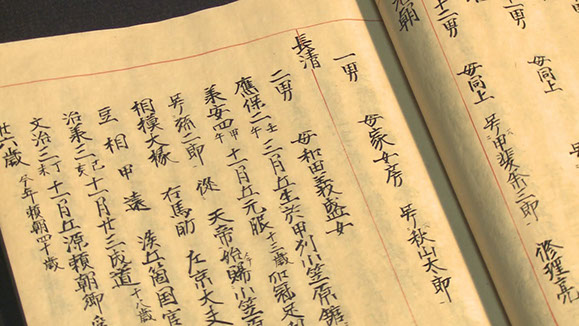 光朝
母同上 修理亮
母同上 号甲斐弥二郎
一男 母家女房 号秋山太郎
長清
二男 母和田義盛女
應保二壬午三月五日生於甲州小笠原舘
承安四甲午十一月五日元服十三歳加冠
号弥二郎 從 天帝始賜小笠原
相模大掾 右馬助 左京大夫
豆相甲遠 淡五箇国官
治承二 十一月廿三日成道十八歳
文治二 十一月五日源頼朝卿
廿六歳 今年頼朝四十歳